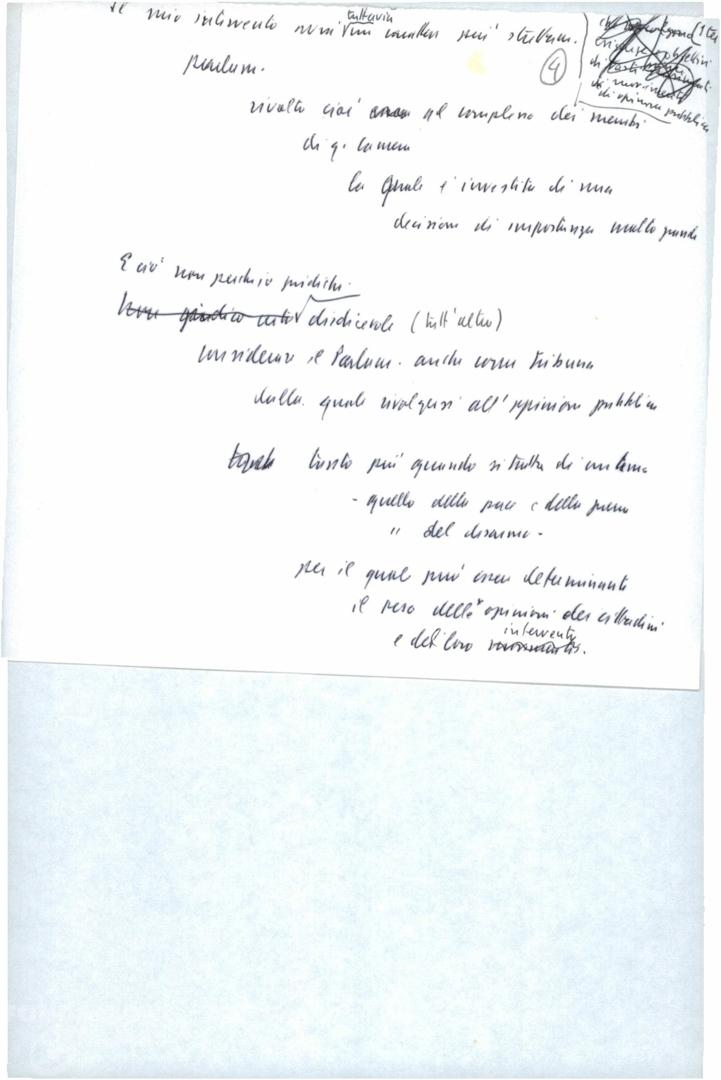 Il mio intervento vuol tuttavia essere più strettam.
parlam.
④
rivolto cioè al complesso dei membri
di q. Camera
la quale è investita di una
decisione di importanza molto grande
E ciò non perch'io giudichi
Non giudico certo disdicevole (tutt'altro)
considerare il Parlam. anche come tribuna
dalla quale rivolgersi all'opinione pubblica
tanto più quando si tratta di un tema
- quello della pace e della guerra
" del disarmo -
per il quale può essere determinante
il peso delle opinioni dei cittadini
e dei loro interventi.
di opinione pubblica